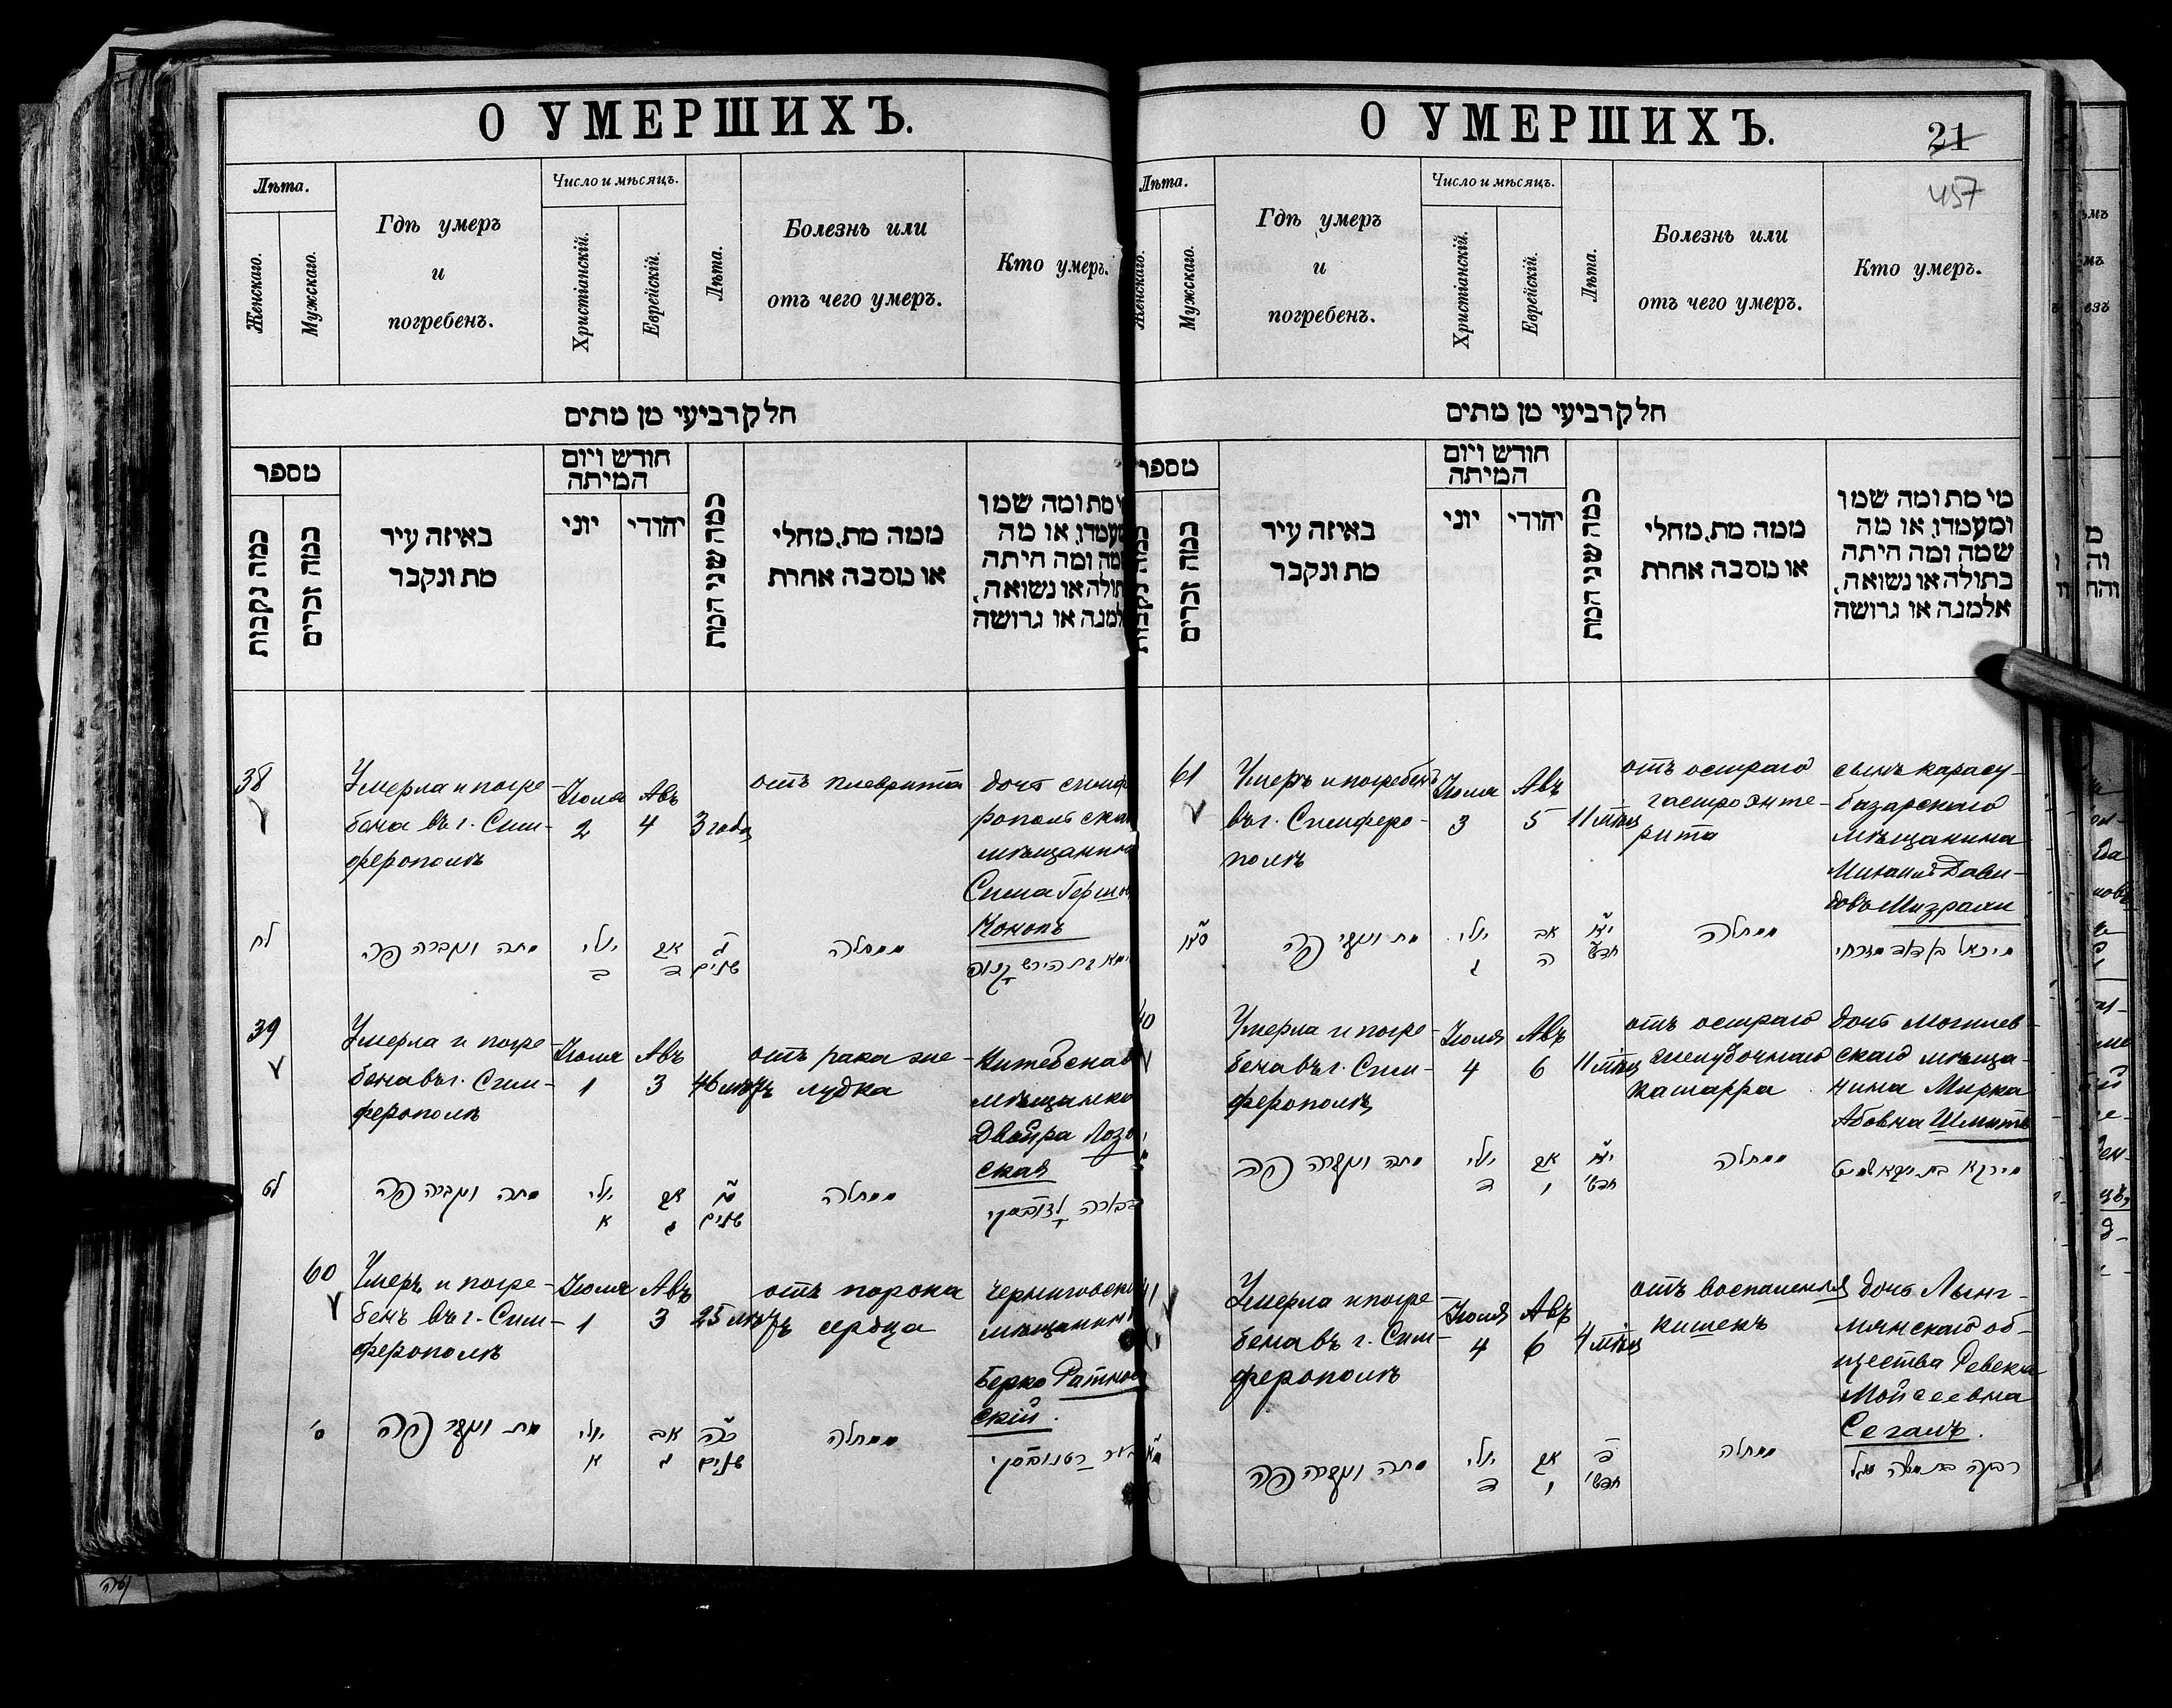 О УМЕРШИХЪ.
Лѣта.
Женскаго.
Мужскаго.
Гдѣ умеръ
и
погребенъ.
Число и мѣсяцъ.
Христіанскій.
Еврейскій.
Лѣта.
Болезнь или
отъ чего умеръ.
Кто умеръ.
חלק רביעי מן מתים
מספר
כמה נקבות
כמה זכרים
באיזה עיר
מת ונקבר
חודש ויום
המיתה
יוני
יהודי
כמה שני המת
ממה מת, מחלי
או מסבה אחרת
מת ומה שמו
או מה
ומה היתה
או נשואה,
או גרושה
38
Умерла и погре-
бена въ г. Сим-
ферополѣ
Іюля
2
Авъ
4
3 года
отъ плеврита
дочь симф
рополь ска
мѣщанина
Сима Герш
Кононъ
לח
מתה ונקברה פה
יולי
ב
אב
ד
ג
שנים
ממחלה
בת הירש
39
Умерла и погре-
бена въ г. Сим-
ферополѣ
Іюля
1
Авъ
3
46 лѣтъ
отъ рака же-
лудка
Витебская
мѣщанка
Двойра Лозо
ская
לט
מתה ונקברה פה
יולי
א
אב
ג
שנים
ממחלה
60
Умеръ и погре-
бенъ въ г. Сим-
ферополѣ
Іюля
1
Авъ
3
25 лѣтъ
отъ порока
сердца
Черниговск
мѣщанин
Берко Ратнов
скій.
ס'
מת ונקבר פה
יולי
א
אב
ג
כה
שנים
ממחלה
רטנובסקי
О УМЕРШИХЪ.
21
457
Лѣта.
Женскаго.
Мужскаго.
Гдѣ умеръ
и
погребенъ.
Число и мѣсяцъ.
Христіанскій.
Еврейскій.
Лѣта.
Болезнь или
отъ чего умеръ.
Кто умеръ.
חלק רביעי מן מתים
מספר
כמה זכרים
באיזה עיר
מת ונקבר
חודש ויום
המיתה
יוני
יהודי
כמה שני המת
ממה מת, מחלי
או מסבה אחרת
מי מת ומה שמו
ומעמדו, או מה
שמה ומה היתה
בתולה או נשואה,
אלמנה או גרושה
61
Умеръ и погребенъ
въ г. Симферо-
полѣ
Іюля
3
Авъ
5
11 мѣсяц
отъ остраго
гастроэнте-
рита
сынъ карасу-
базарскаго
мѣщанина
Михаилъ Дави-
довъ Мизрахи
סא
מת ונקבר פה
יולי
ג
אב
ה
יא
חדש
ממחלה
מיכאל בן דוד מזרחי
40
Умерла и погре-
бена въ г. Сим-
ферополѣ
Іюля
4
Авъ
6
11 мѣсяц
отъ остраго
желудочнаго
катарра
дочь могилев-
скаго мѣща-
нина Мирка
Абовна Шмитъ
מתה ונקברה פה
יולי
ד
אב
ו
יא
חדש'
ממחלה
מירקא בת
41
Умерла и погре
бена въ г. Сим-
ферополѣ
Іюля
4
Авъ
6
4 мѣсяц
отъ воспаленія
кишекъ
дочь Лынг-
мянскаго об-
щества Ревекка
Мойсеевна
Сегалъ.
מא
מתה ונקברה פה
יולי
ד
אב
ו
ד
חדש'
ממחלה
רבקה בת משה סגל